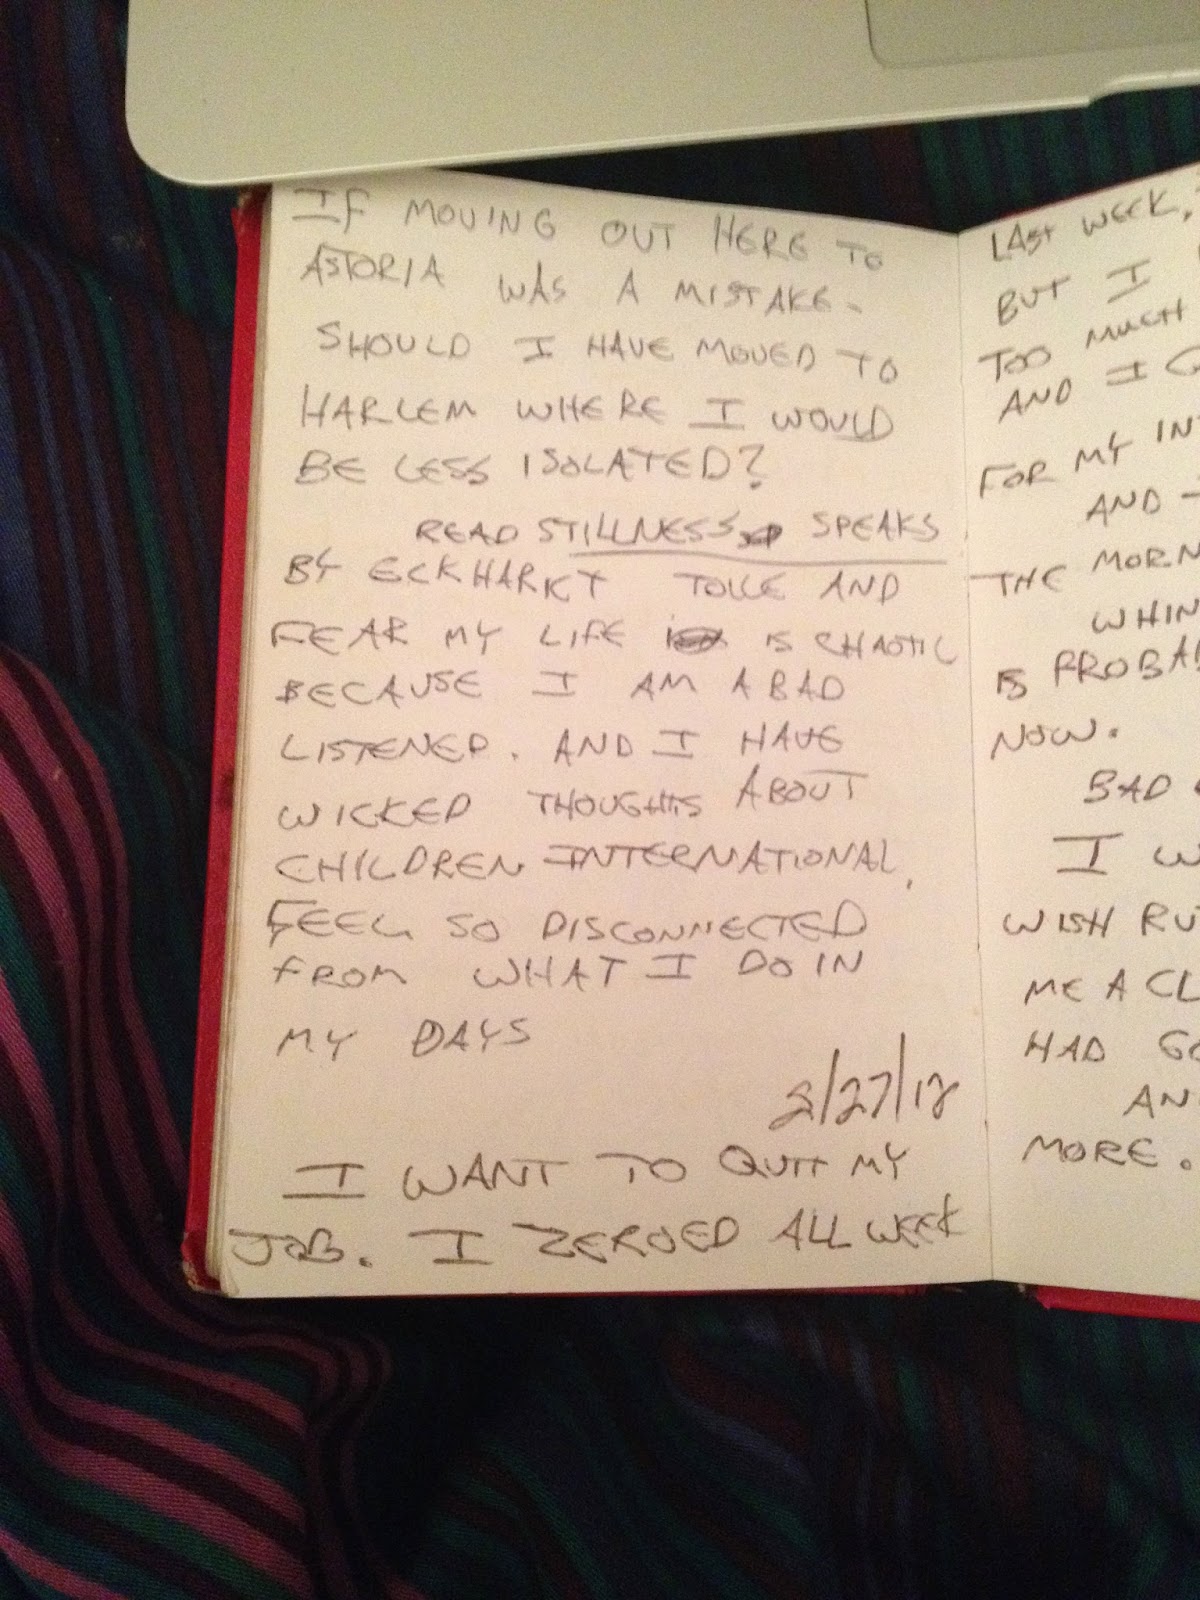 IF MOVING OUT HERE TO
ASTORIA WAS A MISTAKE.
SHOULD I HAVE MOVED TO
HARLEM WHERE I WOULD
BE LESS ISOLATED?
READ STILLNESS SPEAKS
BY ECKHARKT TOLLE AND
FEAR MY LIFE IS CHAOTIC
BECAUSE I AM A BAD
LISTENER. AND I HAVE
WICKED THOUGHTS ABOUT
CHILDREN INTERNATIONAL,
FEEL SO DISCONNECTED
FROM WHAT I DO IN
MY DAYS
2/27/12
I WANT TO QUIT MY
JOB. I ZEROED ALL WEEK
LAST WEEK,
BUT I
TOO MUCH
AND I
FOR MY
AND
THE
IS
NOW.
BAD
I
WISH
ME A
HAD
MORE.